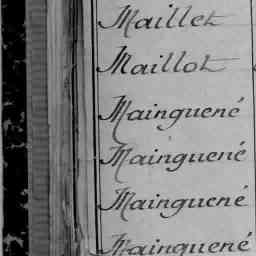 Maillet
Maillot
Mainguené
Mainguené
Mainguené
Mainguené